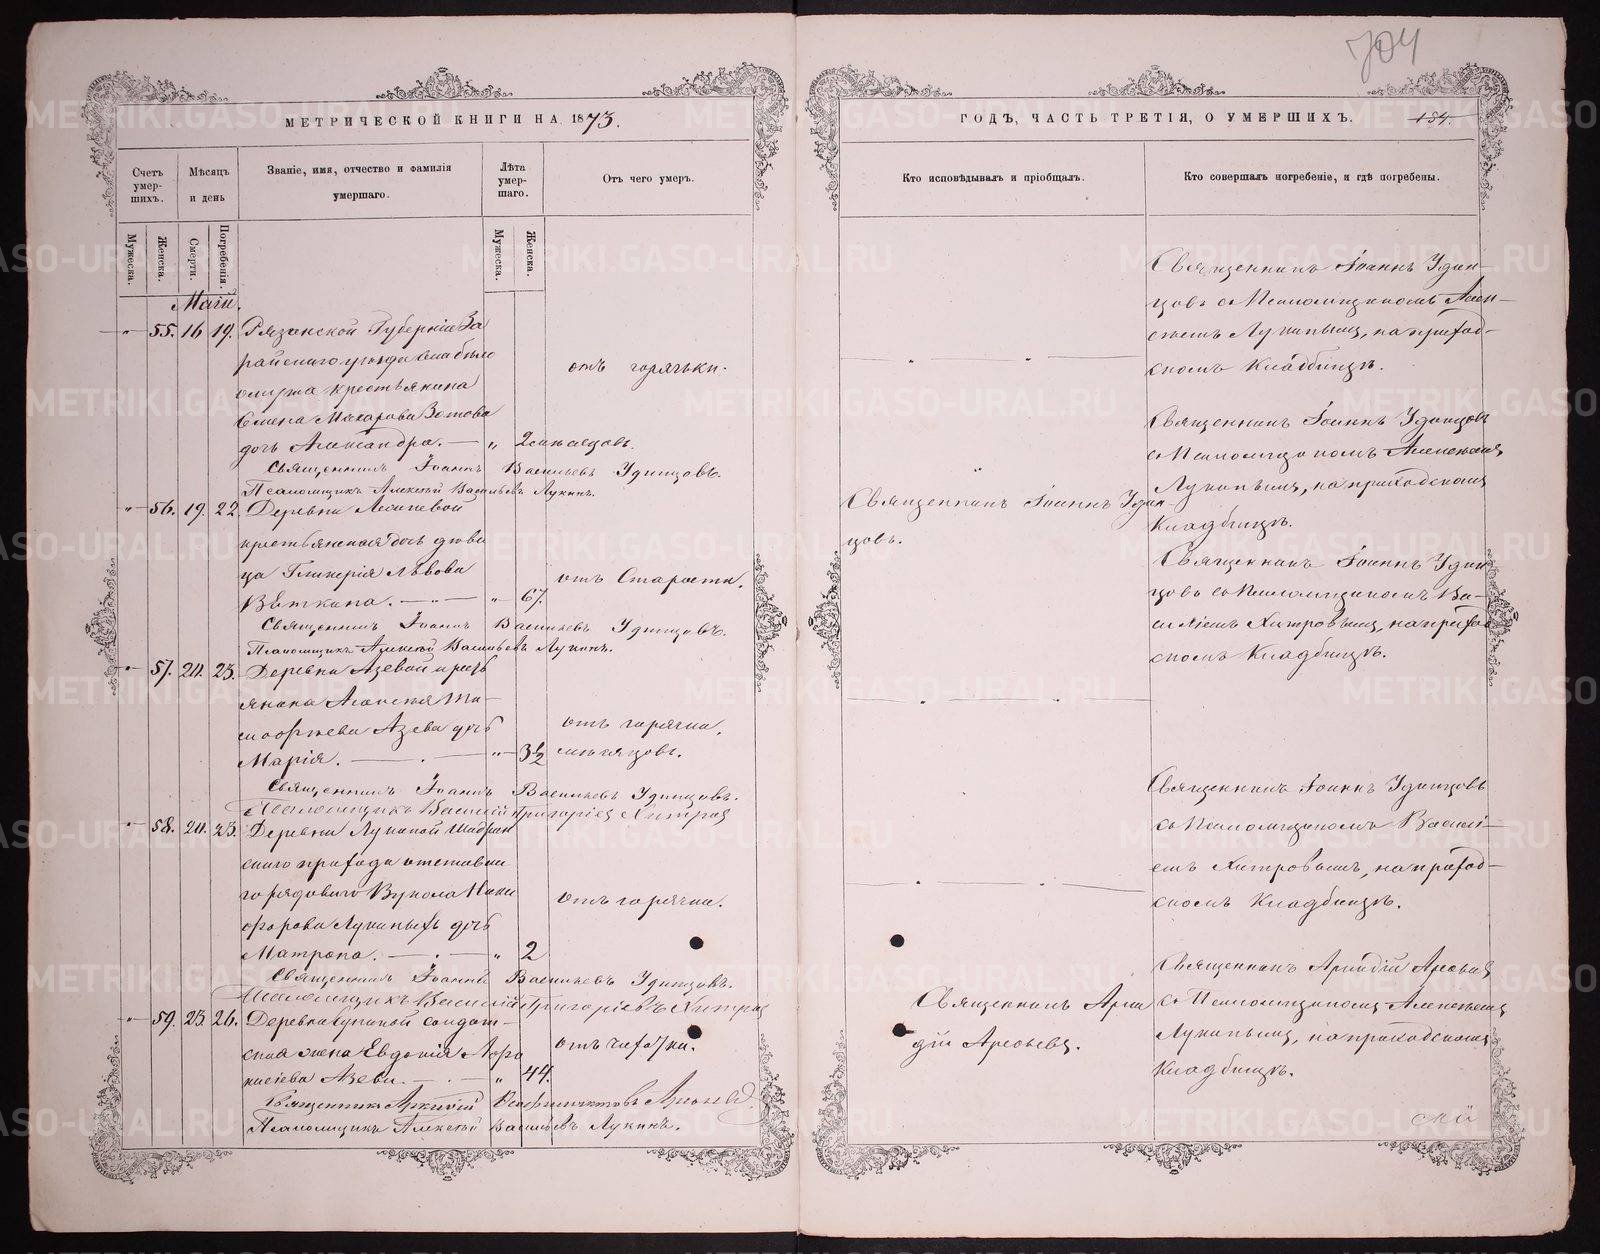 704
МЕТРИЧЕСКОЙ КНИГИ НА 1873.
Счетъ умер-шихъ.
Мѣсяцъ и день
Званіе, имя, отчество и фамилія умершаго.
Лѣта умер-шаго.
Отъ чего умеръ.
Мужеска.
Женска.
Смерти.
Погребенія.
Мужеска.
Женска.
Маій.
" 55. 16 19. Рязанской Губерніи За
райскаго уѣзда
крестьянина
Макарова Зотова
дочь Александра. — " 2
отъ горячьки.
Священникъ Іоаннъ Васильевъ Удинцовъ.
Псаломщикъ Алексѣй Васильевъ Лукинъ.
" 56. 19. 22. Деревни
крестьянская дочь дѣви
ца Гликерія Львова
— " — " 67.
отъ Старости.
Священникъ Іоаннъ Васильевъ Удинцовъ.
Псаломщикъ Алексѣй Васильевъ Лукинъ.
" 57. 24. 25. Деревни Азевой кресть
янина
Азева дочь
Марія. — . — " 3½ мѣсяцовъ.
отъ горячки,
Священникъ Іоаннъ Васильевъ Удинцовъ.
Псаломщикъ Василій Григоріевъ Хитровъ
" 58. 24. 25. Деревни Лукиной
скаго прихода отставна
го рядоваго Вукола Ники
форова Лукиныхъ дочь
Матрона. — . — " 2
отъ горячки.
Священникъ Іоаннъ Васильевъ Удинцовъ.
Псаломщикъ Василій Григоріевъ Хитровъ
" 59. 25. 26. Деревни солдат-
ская жена Евдокія
Азева. — . — " 44.
отъ чахотки.
Священникъ Аркадій Арефьевъ
Псаломщикъ Алексѣй Васильевъ Лукинъ.
ГОДЪ, ЧАСТЬ ТРЕТІЯ, О УМЕРШИХЪ.
184.
Кто исповѣдывалъ и пріобщалъ.
Кто совершалъ погребеніе, и гдѣ погребены.
Священникъ Іоаннъ Удин-
цовъ съ Псаломщикомъ Алек-
сѣемъ Лукинымъ, на приход-
скомъ Кладбищѣ.
Священникъ Іоаннъ Удин-
цовъ.
Священникъ Іоаннъ Удинцовъ
съ Псаломщикомъ Алексѣемъ
Лукинымъ, на приходскомъ
Кладбищѣ.
Священникъ Іоаннъ Удин
цовъ съ Псаломщикомъ Ва-
силіемъ Хитровымъ, на приход
скомъ Кладбищѣ.
Священникъ Іоаннъ Удинцовъ
съ Псаломщикомъ Василі-
емъ Хитровымъ, на приход-
скомъ Кладбищѣ.
Священникъ Арка
дій Арефьевъ.
Священникъ Аркадій Арефьевъ
съ Псаломщикомъ Алексѣемъ
Лукинымъ, на приходскомъ
Кладбищѣ.
METRIKI.GASO-URAL.RU